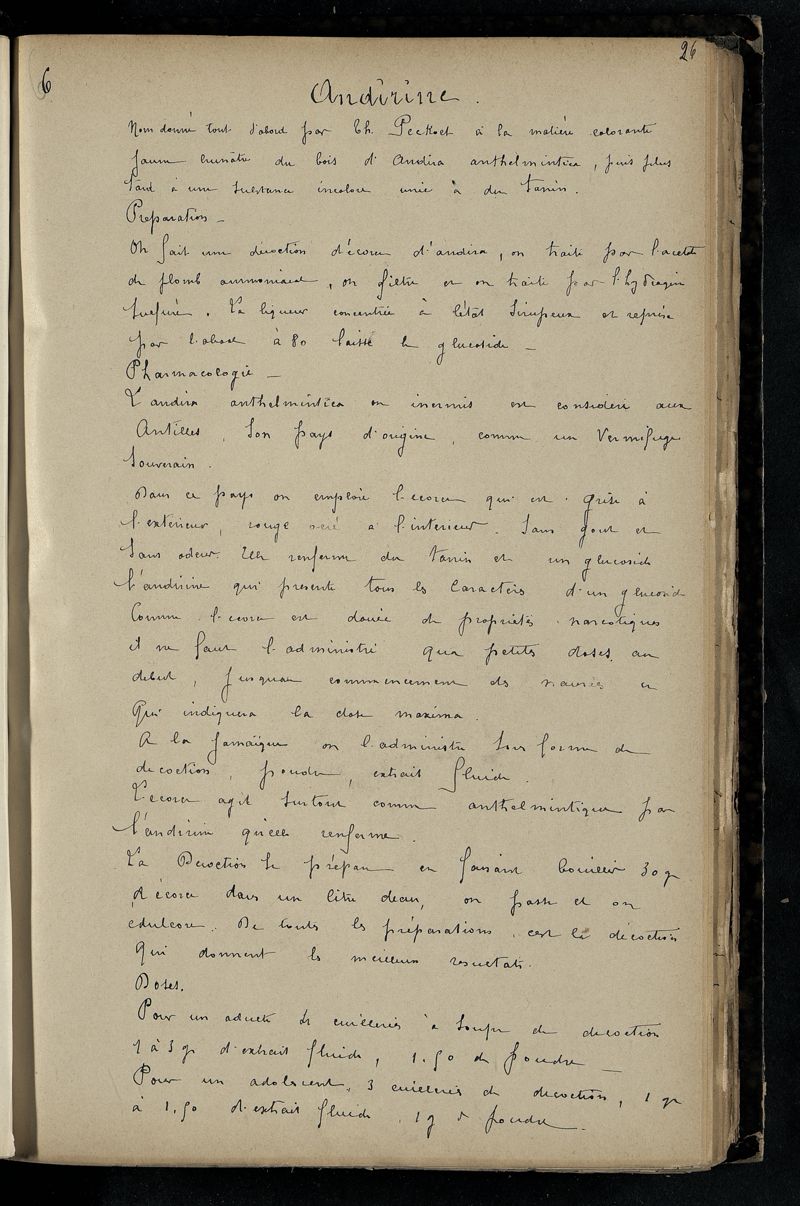 26
6
Andirine.
Nom donné tout d'abord par Th. Peckoet à la matière colorante
jaune brunâtre du bois d'Andira anthelmintica, puis plus
tard à une substance incolore unie à du tanin.
Preparation -
On fait une décoction d'écorce d'andira, on traite par l'acetate
de plomb ammoniacal, on filtre et on traite par l'hydrogène
sulfuré. La liqueur concentrée à l'état sirupeux et reprise
par l'alcool à 80 laisse le glucoside -
Pharmacologie -
L'andira anthelmintica ou inermis est consideré aux
Antilles, son pays d'origine, comme un Vermifuge
Souverain.
Dans ce pays on emploie l'ecorce qui est grise à
l'exterieur, rouge à l'interieur. Sans gout et
Sans odeur. Elle renferme du tanin et un glucoside
l'andirine qui presente tous les Caractères d'un glucoside
Comme l'ecorce est douée de propriétés narcotiques
il ne faut l'administré qua petites doses au
debut, jusquau commencement des nausées
Qui indiquera la dose maxima.
A la Jamaïque on l'administre sous forme de
decoction, poudre, extrait fluide.
L'ecorce agit surtout comme anthelmintique par
l'andirine qu'elle renferme.
La Decoction se prépare en faisant bouillir 30 gr
d'écorce dans un litre deau, on passe et on
edulcore. De toutes les préparations, c'est la décoction
Qui donnent les meilleurs resultats.
Doses.
Pour un adulte 4 cuillerées à soupe de decoction
1 à 3 gr d'extrait fluide, 1.50 de poudre -
Pour un adolescent, 3 cuillerées de decoction, 1 gr
à 1,50 d'extrait fluide, 1 g de poudre.